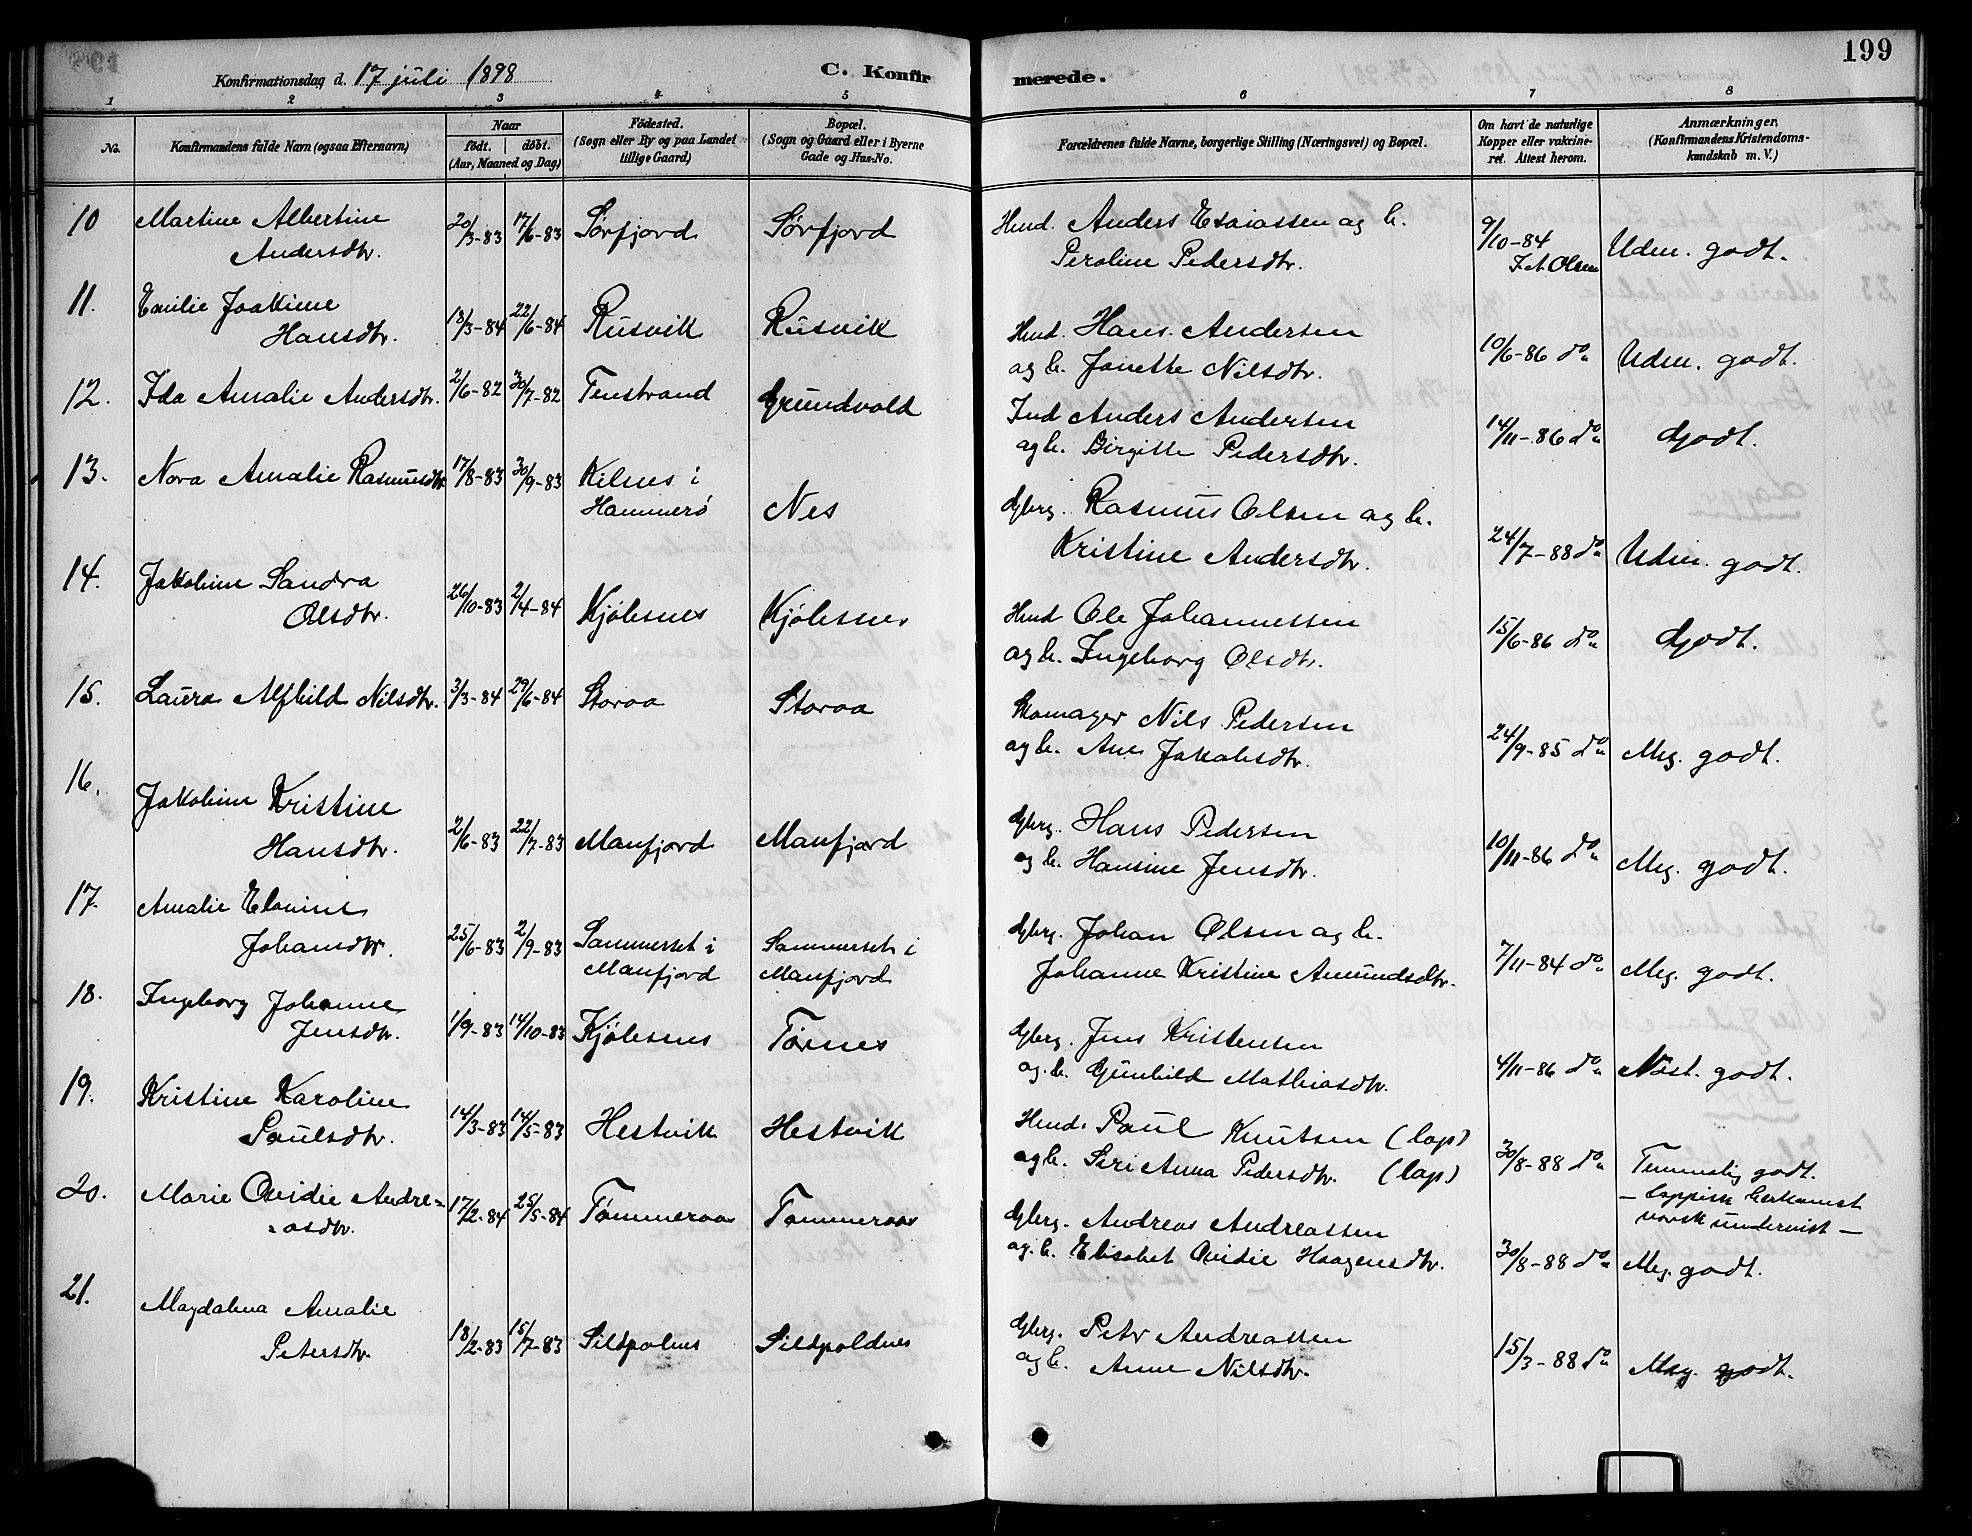 199
Konfirmationsdag d. 17 juli 1898
C. Konfirmerede.
1 2 3 4 5 6 7 8
No.
Konfirmandens fulde Navn (ogsaa Efternavn)
Naar
født. døbt.
(Aar, Maaned og Dag)
Födested.
(Sogn eller By og paa Landet
tillige Gaard)
Bopæl.
(Sogn og Gaard eller i Byerne
Gade og Hus-No.
Forældrenes fulde Navne, borgerlige Stilling (Næringsvei) og Bopæl.
Om havt de naturlige
Kopper eller vakcine-
ret. Attest herom.
Anmærkninger.
(Konfirmandens Kristendoms-
kundskab m. V.)
10 Martine Albertine
Andersdtr. 20/3-83 17/6-83 Sørfjord Sørfjord
Hmd. Anders Esaiassen og h.
Peroline Pedersdtr. 9/10-84
J.A. Olsen Udm. godt.
11. Emilie Joakime
Hansdtr. 13/3-84 22/6-84 Rusvik Rusvik
Hmd. Hans Andersen
og h. Janette Nilsdtr. 10/6-86 do Udm. godt.
12. Ida Amalie Andersdtr. 2/6-82 30/7-82 Tenstrand Grundvold
Ind Anders Andersen
og h. Birgitte Pedersdtr. 14/11-86 do Godt.
13. Nora Amalie Rasmusdtr. 17/8-83 30/9-83 Kilnes i
Hammerø Nes
Gbrg. Rasmus Olsen og h.
Kristine Andersdtr. 24/7-88 do Udm. godt.
14. Jakobine Sandra
Olsdtr. 26/10-83 2/4-84 Kjølesnes Kjølesnes
Hmd Ole Johannessen
og h. Ingeborg Olsdtr. 15/6-86 do Godt.
15. Laura Alfhild Nilsdtr. 3/3-84 29/6-84 Storaa Storaa
Skomager Nils Pedersen
og h. Ane Jakobsdtr. 24/9-85 do Meg. godt.
16. Jakobine Kristine
Hansdtr. 2/6-83 22/7-83 Manfjord Manfjord
Gbrg. Hans Pedersen
og h. Hansine Jensdtr. 10/11-86 do Meg. godt.
17. Amalie Elonine
Johansdtr. 25/6-83 2/9-83 Sammerset i
Manfjord Sammerset i
Manfjord
Gbrg. Johan Olsen og h.
Johanne Kristine Amundsdtr. 7/11-84 do Meg. godt.
18. Ingeborg Johanne
Jensdtr. 1/9-83 14/10-83 Kjølesnes Tørnes
Gbrg. Jens Kristensen
og. h. Gunhild Mathiasdtr. 4/11-86 do Næst. godt.
19. Kristine Karoline
Paulsdtr. 14/3-83 14/5-83 Hestvik Hestvik
Hmd. Paul Knutsen (lap)
og h. Siri Anna Pedersdtr. (lap) 30/8-88 do Temmelig godt.
– lappisk herkomst
norsk undervist –
20. Marie Ovidie Andre=
=asdtr. 17/2-84 25/5-84 Tømmeraas Tømmeraas
Gbrg. Andreas Andreassen
og. h. Elisabet Ovidie Haagensdtr. 30/8-88 do Meg. godt.
21. Magdalena Amalie
Petersdtr. 18/2-83 15/7-83 Sildpolnes Sildpoldnes
Gbrg. Petr Andreassen
og h. Anne Nilsdtr. 15/3-88 do Meg. godt.